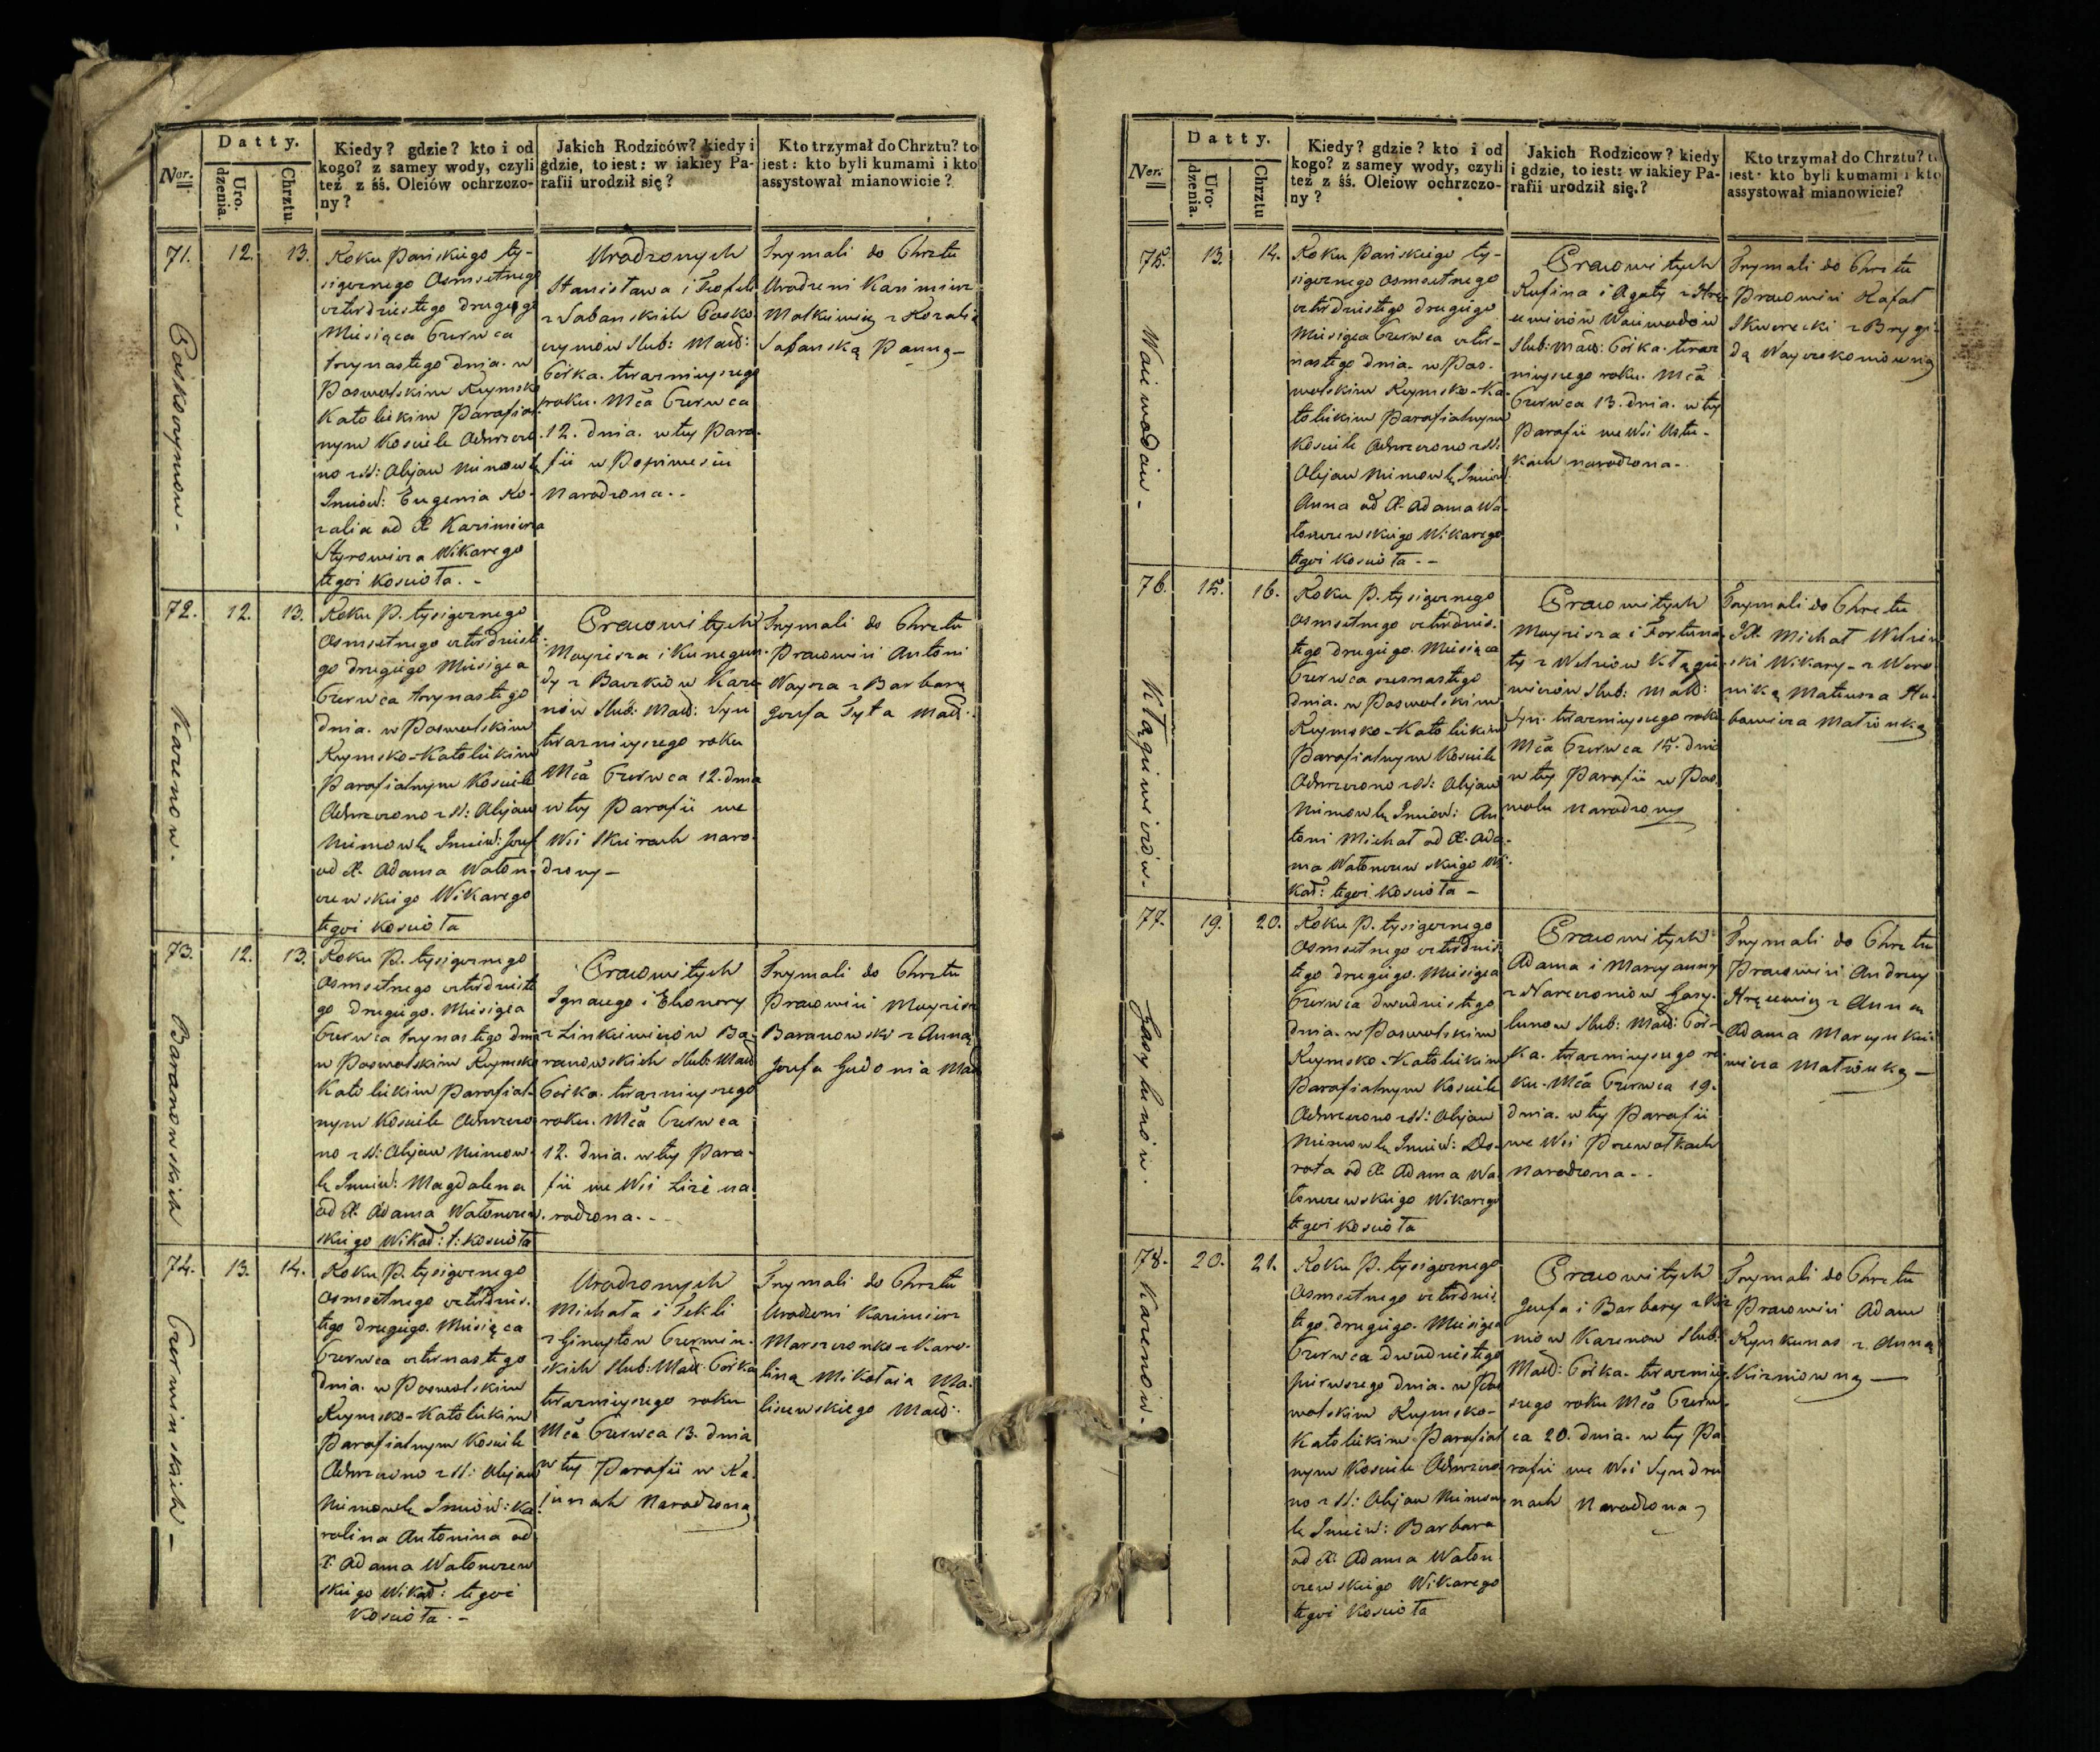 Ner.
Datty.
Uro-
dzenia.
Chrztu.
Kiedy? gdzie? kto i od
kogo? z samey wody, czyli
też z śś. Oleiów ochrzczo-
ny?
Jakich Rodziców? kiedy i
gdzie, to iest: w iakiey Pa-
rafii urodził się?
Kto trzymał do Chrztu? to
iest: kto byli kumami i kto
assystował mianowicie?
71.
12.
13.
Roku Pańskiego ty-
siącznego Osmsetnego
czterdziestego drugiego
Miesiąca Czerwca
trzynastego dnia. w
Poswolskim Rzymsko
Katolickim Parafial-
nym Kościele Ochrzczo-
no z SS: Olejow Niemowlę
Imion: Eugenia Ro-
zalia od X. Kazimierza
Styrowicza Wikarego
tegoi Kościoła. -
Urodzonych
Stanisława i Teofili
z Sabanskich
Slub: Małż:
Córka. teraznieyszego
roku. Mca Czerwca
12. dnia. w tey Para-
fii w Popiweściu
Narodzona. -
Trzymali do Chrztu
Urodzeni Kazimierz
Matkiewicz z Rozalią
Sabanską Panną -
72.
12.
13.
Karenow.
Roku P. tysiącznego
Osmsetnego czterdzieste-
go drugiego Miesiąca
Czerwca trzynastego
dnia. w Poswolskim
Rzymsko-Katolickim
Parafialnym Kościele
Ochrzczono z SS: Olejow
Niemowlę Imien: Jozef
od X. Adama Waton-
czewskiego Wikarego
tegoi Kościoła
Pracowitych
Maryisza i Kunegun-
dy z Baczkiow Kare-
now Slub: Małż: Syn
teraznieyszego roku
Mca Czerwca 12. dnia
w tey Parafii we
Wsi Skierach naro-
dzony -
Trzymali do Chrztu
Pracowici Antoni
Wayza z Barbarą
Jozefa Tyta Małż:
73.
12.
13.
Baranowskich
Roku P. tysiącznego
Osmsetnego czterdzieste-
go drugiego. Miesiąca
Czerwca trzynastego dnia
w Poswolskim Rzymsko
Katolickim Parafial-
nym Kościele Ochrzczo-
no z SS: Olejow Niemow-
lę Imien: Magdalena
od X. Adama Watonczew-
skiego Wikar: t: Kościoła
Pracowitych
Ignacego i Elionory
z Linkiewiczow Ba-
ranowskich Slub: Małż
Córka. teraznieyszego
roku. Mca Czerwca
12. dnia. w tey Para-
fii we Wsi na
rodzona. -
Trzymali do Chrztu
Pracowici Maryisz
Baranowski z Anną
Jozefa Gudonia Małż
74.
13.
14.
Czerwinskich -
Roku P. tysiącznego
Osmsetnego czterdzies-
tego drugiego. Miesiąca
Czerwca czternastego
dnia. w Poswolskim
Rzymsko-Katolickim
Parafialnym Kościele
Ochrzczono z SS: Olejow
Niemowlę Imion: Ka
rolina Antonina od
X. Adama Watonczew
skiego Wikar: tegoi
Kościoła. -
Urodzonych
Michała i Tekli
z Gineytow Czerwin-
skich Slub: Małż: Córka
teraznieyszego roku
Mca Czerwca 13. dnia
w tey Parafii w Ka-
junach Narodzona
Trzymali do Chrztu
Urodzeni Kazimierz
z Karo-
liną Mikołaia Ma-
liszewskiego Małż:
Ner.
Datty.
Uro-
dzenia.
Chrztu
Kiedy? gdzie? kto i od
kogo? z samey wody, czyli
też z śś. Oleiow ochrzczo-
ny?
Jakich Rodzicow? kiedy
i gdzie, to iest: w iakiey Pa-
rafii urodził się.?
Kto trzymał do Chrztu? t
iest: kto byli kumami i kto
assystował mianowicie?
75.
13.
14.
Waiewodow -
Roku Pańskiego ty-
siącznego Osmsetnego
czterdziestego drugiego
Miesiąca Czerwca czter-
nastego dnia. w Pos-
wolskim Rzymsko-Ka-
tolickim Parafialnym
Kościele Ochrzczono z SS:
Olejow Niemowlę Imien:
Anna od X. Adama Wa-
tonczewskiego Wikarego
tegoi Kościoła - -
Pracowitych
Rufina i Agaty z Hrę-
cewiczow Waiewodow
Slub: Małż: Córka. teraz
nieyszego roku. Mca
Czerwca 13. dnia. w tey
Parafii we Wsi Ustu-
kach narodzona -
Trzymali do Chrztu
Pracowici Rafał
Skworecki z Brygi-
dą
76.
15.
16.
Kłągiewiczów -
Roku P. tysiącznego
Osmsetnego czterdzies-
tego drugiego. Miesiąca
Czerwca szesnastego
dnia. w Poswolskim
Rzymsko-Katolickim
Parafialnym Kościele
Ochrzczono z SS: Olejow
Niemowlę Imion: An
toni Michał od X. Ada-
ma Watonczewskiego Wi-
kar: tegoi Kościoła -
Pracowitych
Maryisza i Fortuna-
ty z Welziow Kłągie-
wiczow Slub: Małż:
Syn. teraznieyszego roku
Mca Czerwca 15. dnia
w tey Parafii w Pos
wolu Narodzony
Trzymali do Chrztu
JX. Michał
ski Wikary - z Wero-
niką Mateusza Hu-
bowicza Małżonką
77.
19.
20.
Gasylunow.
Roku P. tysiącznego
Osmsetnego czterdzies-
tego drugiego. Miesiąca
Czerwca dwudziestego
dnia. w Poswolskim
Rzymsko-Katolickim
Parafialnym Kościele
Ochrzczono z SS: Olejow
Niemowlę Imien: Do-
rota od X. Adama Wa-
tonczewskiego Wikarego
tegoi Kościoła
Pracowitych
Adama i Maryanny
z Narczoniow Gasy-
lunow Slub: Małż: Cór-
ka. teraznieyszego ro
ku. Mca Czerwca 19.
dnia. w tey Parafii
we Wsi Przewałkach
Narodzona - .
Trzymali do Chrztu
Pracowici Andrzey
Hręcewicz z Anną
Adama Marcynkie-
wicza Małżonką -
78.
20.
21.
Karenow -
Roku P. tysiącznego
Osmsetnego czterdzies-
tego drugiego. Miesiąca
Czerwca dwudziestego
pierwszego dnia. w Pos
wolskim Rzymsko-
Katolickim Parafial
nym Kościele Ochrzczo-
no z SS: Olejow Niemow
lę Imien: Barbara
od X. Adama Waton-
czewskiego Wikarego
tegoi Kościoła
Pracowitych
Jozefa i Barbary z Kir
niow Karenow Slub:
Małż: Córka. terazniey-
szego roku Mca Czerw-
ca 20. dnia. w tey Pa
rafii we Wsi Syndru
nach Narodzona
Trzymali do Chrztu
Pracowici Adam
Rynkunas z Anną
Kirniowną -